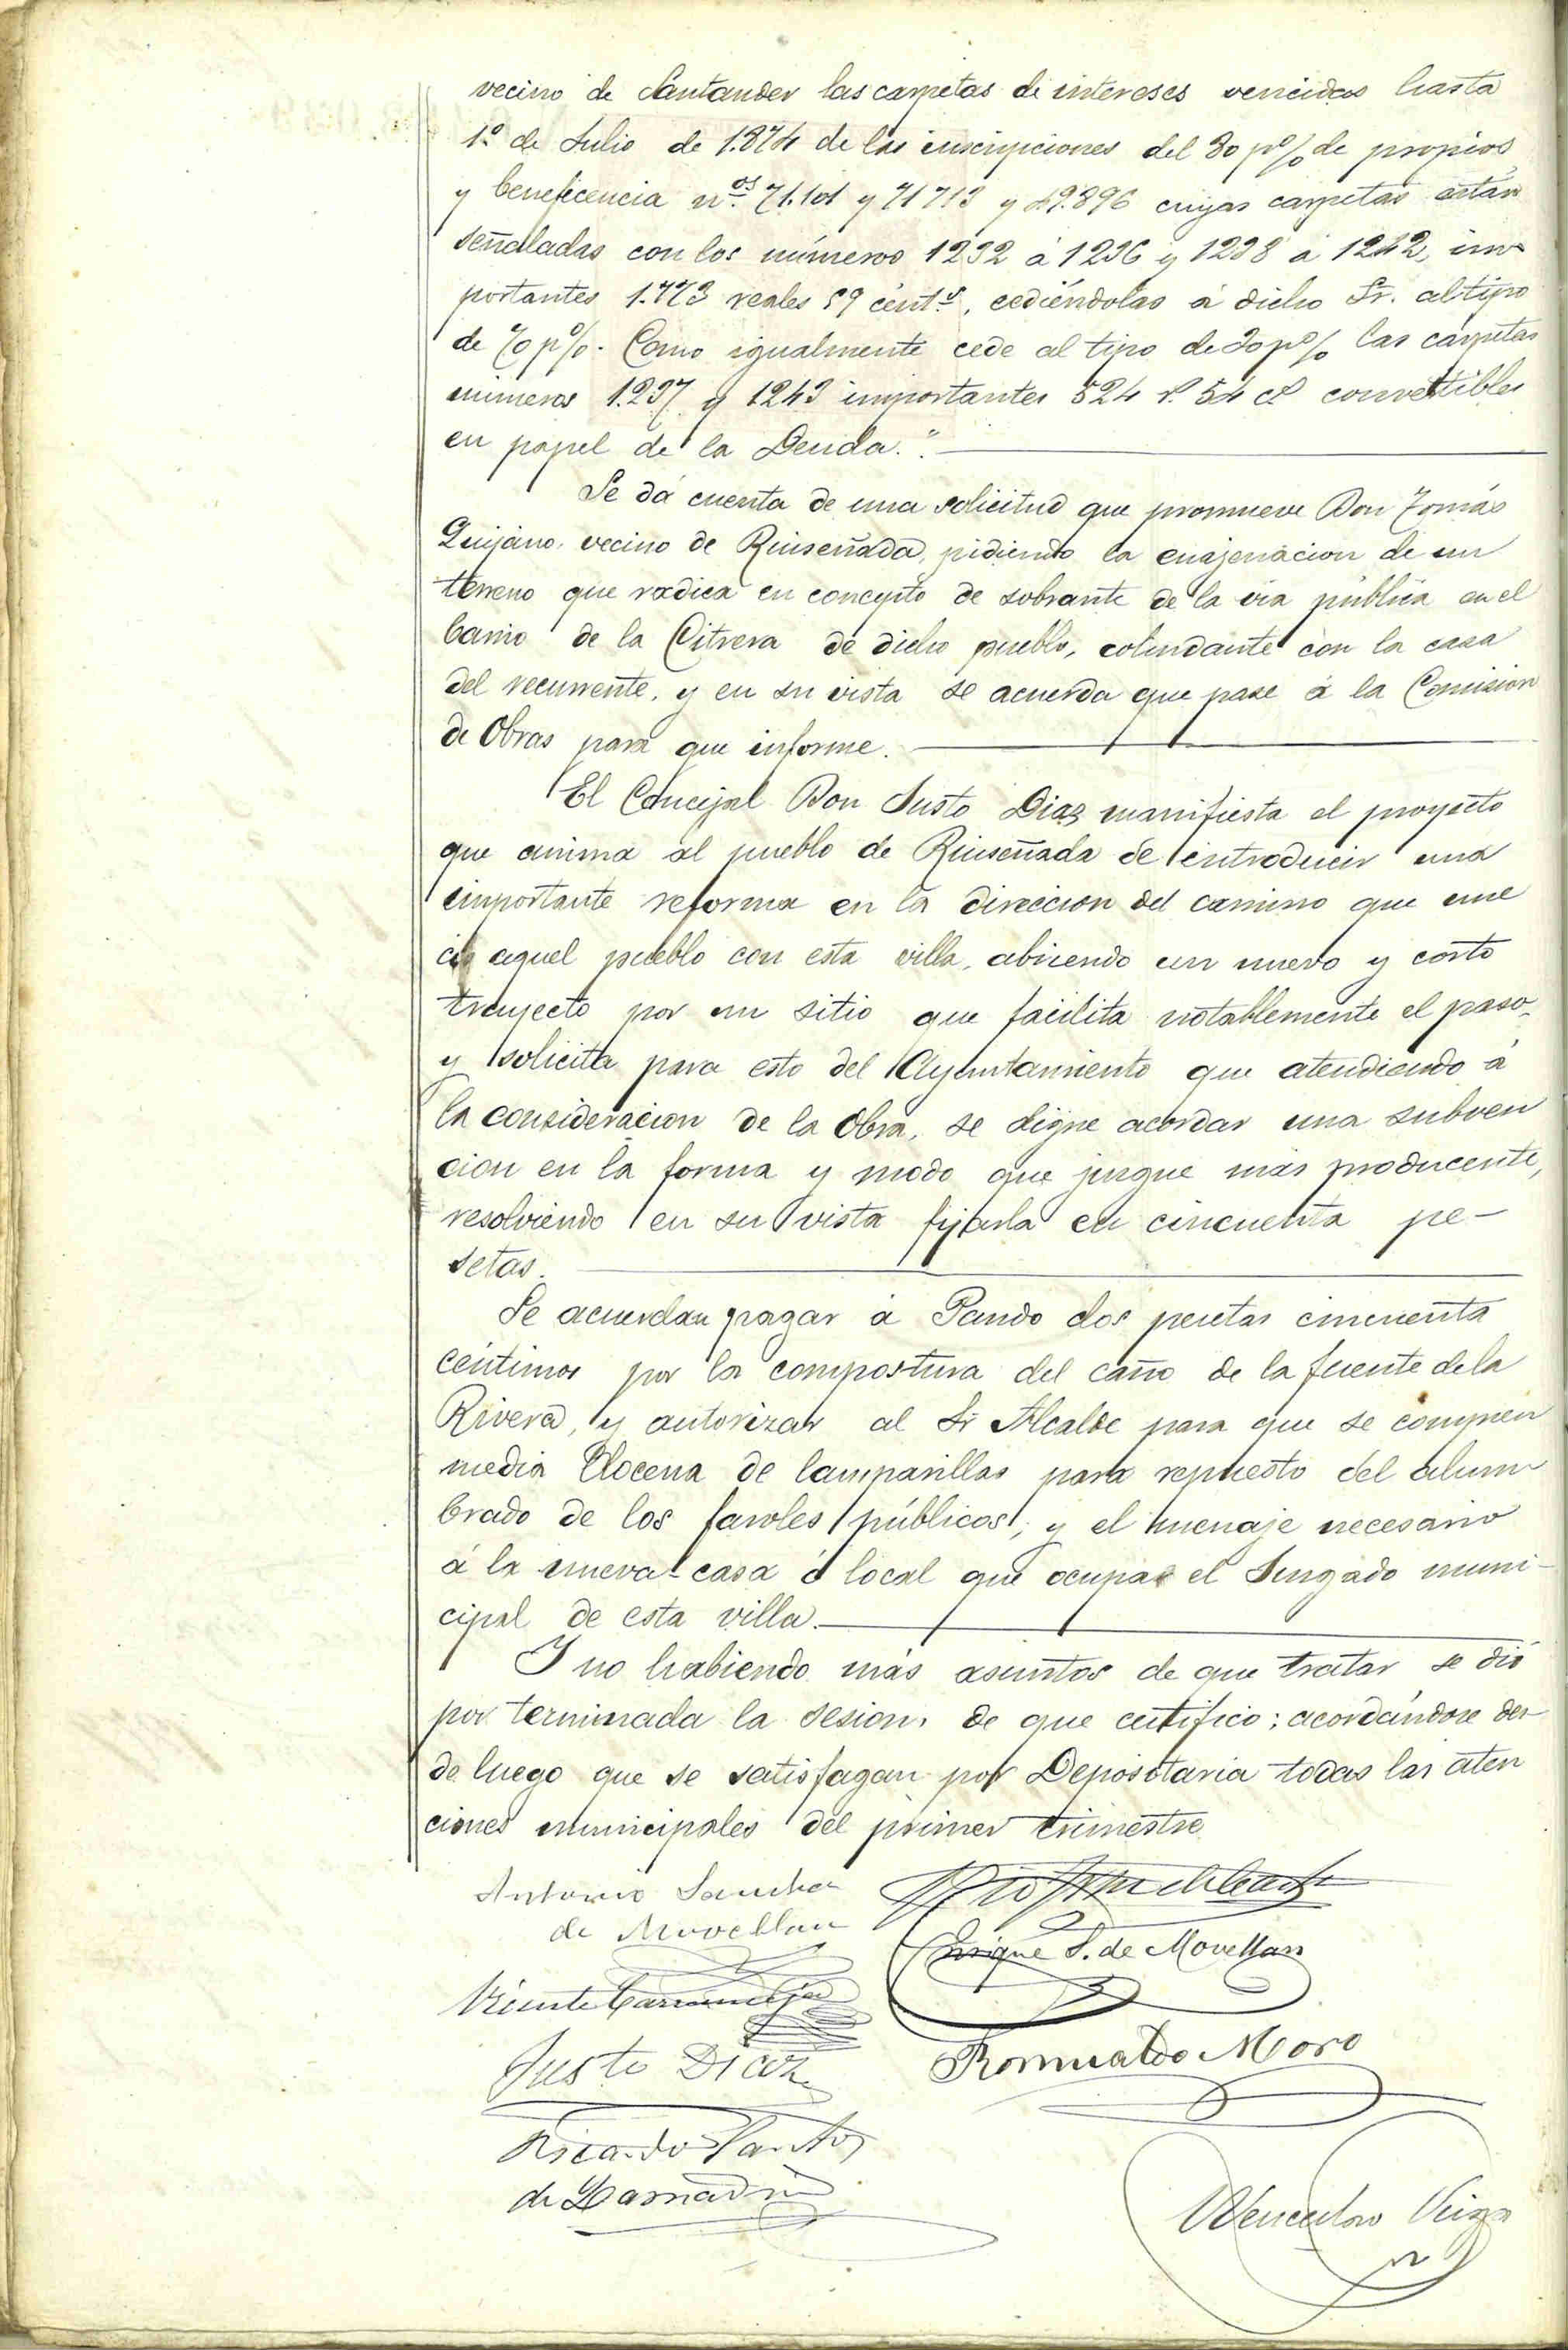 vecino de Santander las carpetas de intereses vencidas hasta
1º de Julio de 1.874 de las inscripciones del 80 pº% de propios
y beneficencia nos. 71.101 y 71713 y 49.896 cuyas carpetas estan
señaladas con los números 1232 á 1236 y 1238 á 1242, im
portantes 1.773 reales 59 cénts, cediéndolas á dicho Sr. al tipo
de 70 pº%. Como igualmente cede al tipo de 20 pº% las carpetas
números 1.237 y 1243 importantes 524 rs. 54 cs convertibles
en papel de la Deuda."
Se dá cuenta de una solicitud que promueve Don Tomás
Quijano, vecino de Rinseñada, pidiendo la enajenacion de un
terreno que radica en concepto de sobrante de la via pública en el
barrio de la Citrera de dicho pueblo, colindante con la casa
del recurrente, y en su vista se acuerda que pase á la Comision
de Obras para que informe.
El Concejal Don Justo Diaz manifiesta el proyecto
que anima al pueblo de Rinseñada de introducir una
importante reforma en la direccion del camino que une
á aquel pueblo con esta villa, abriendo un nuevo y corto
trayecto por un sitio que facilita notablemente el paso,
y solicita para esto del Ayuntamiento que atendiendo á
la consideracion de la Obra, se digne acordar una subven
cion en la forma y modo que juzgue más producente,
resolviendo en su vista fijarla en cincuenta pe-
setas.
Se acuerdan pagar á Pando dos pesetas cincuenta
céntimos por la compostura del caño de la fuente de la
Rivera, y autorizar al Sr Alcalde para que se compren
media Docena de lamparillas para repuesto del alum
brado de los faroles públicos; y el menaje necesario
á la nueva casa ó local que ocupa el Juzgado muni-
cipal de esta villa.
Y no habiendo más asuntos de que tratar se dió
por terminada la sesion, de que certifico; acordándose des-
de luego que se satisfagan por Depositaria todas las aten
ciones municipales del primer trimestre
Antonio Sanchez
de Movellan
Enrique S. de Movellan
Vicente Carranceja
Justo Diaz
Romualdo Moro
Ricardo Santos
de Lamadrid
Wenceslao Veiga